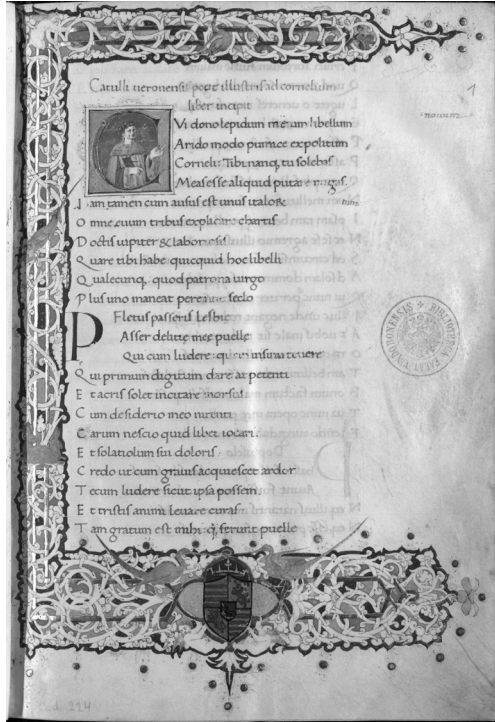 Catulli ueronensis poete illustris ad cornelium
liber incipit
1
Vi dono lepidum meum libellum
nouum
Arido modo pumice expolitum
Corneli: Tibi nanq; tu solebas
Meas esse aliquid putare nugas.
Iam tamen cum ausus est unus italoꝝ
Omne euum tribus explicare chartis
Doctis iupiter & laboriosis
Quare tibi habe quicquid hoc libelli
Qualecunq; quod patrona uirgo
Plus uno maneat perenne seclo
Fletus passeris Lesbie
PAsser delitie mee puelle
Qui cum ludere: quem in sinu tenere
Qui primum digitum dare at petenti
Et acris solet incitare morsus
Cum desiderio meo nitenti
Carum nescio quid libet iocari.
Et solatiolum sui doloris
Credo ut cum grauis acquiescet ardor
Tecum ludere sicut ipsa possem
Et tristis animi leuare curas
Tam gratum est mihi: q̃ ferunt puelle
BIBLIOTHECA
Cod. 224